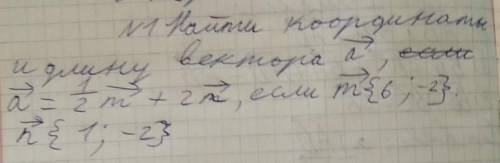 №1 Найти координаты
и длину вектора a⃗, если
a⃗ = 1/2 m⃗ + 2n⃗, если m⃗{6 ; -2}.
n⃗{ 1; -2}